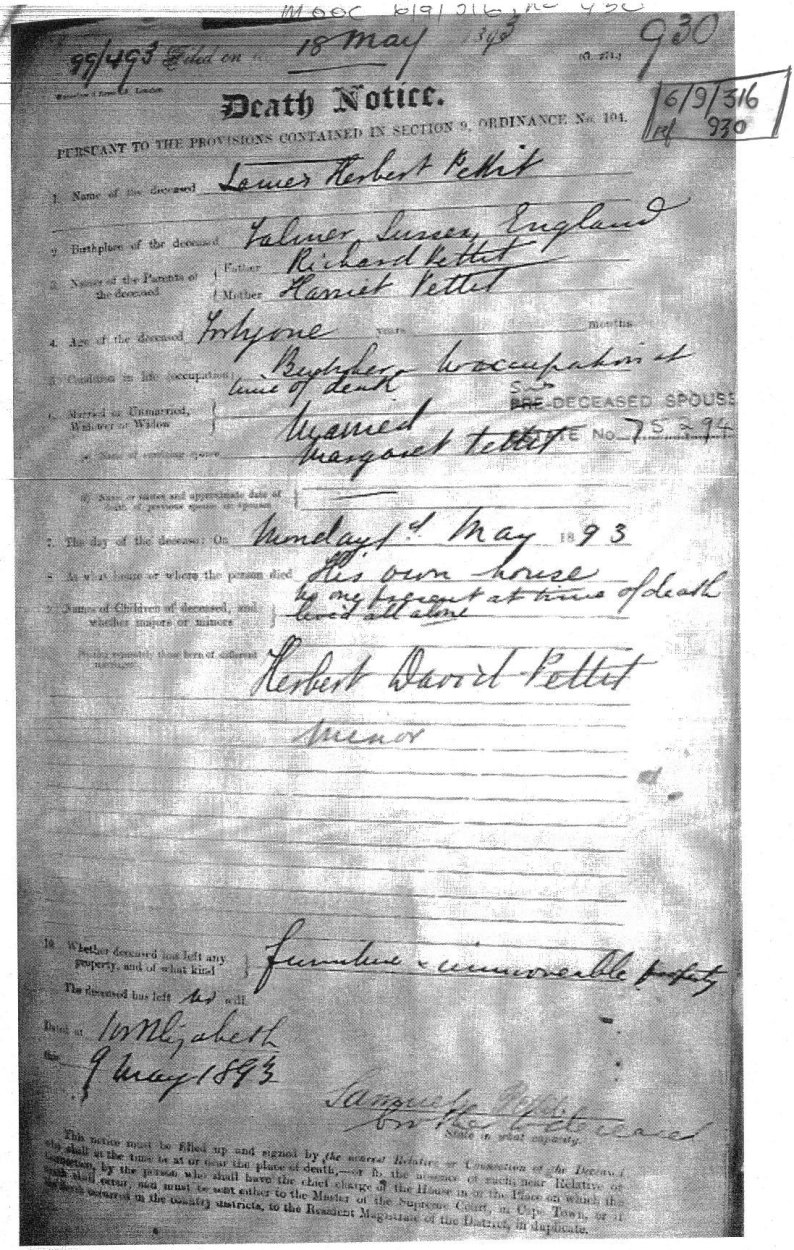 MOOC 6/9/316, no 930
99/493 Filed on 18 May 1893
930
Death Notice.
6/9/316
ref 930
PURSUANT TO THE PROVISIONS CONTAINED IN SECTION 9, ORDINANCE No. 104.
1. Name of the deceased James Herbert Pettit
2. Birthplace of the deceased Falmer, Sussex, England
3. Names of the Parents of the deceased { Father Richard Pettit
{ Mother Harriet Pettit
4. Age of the deceased Fortyone years months
5. Condition in life (occupation) Butcher no occupation at
time of death
6. Married or Unmarried, Widower or Widow } Married
PRE-DECEASED SPOUSE
ESTATE No. 75294
a) Name of surviving spouse Margaret Pettit
b) Name or names and approximate date of death of previous spouse or spouses
7. The day of the decease: On Monday 1st May 1893
8. At what house or where the person died His own house
no one present at time of death
lived all alone
9. Names of Children of deceased, and whether majors or minors }
Herbert David Pettit
minor
10. Whether deceased has left any property, and of what kind } furniture & immoveable property
The deceased has left no will.
Dated at Elizabeth
this 9 May 1893
Samuel Pettit
brother to deceased
State in what capacity.
This notice must be filled up and signed by the nearest Relative or Connection of the Deceased
who shall at the time be at or near the place of death,—or in the absence of such near Relative or
Connection, by the person who shall have the chief charge of the House in or the Place on which the
death shall occur, and must be sent either to the Master of the Supreme Court, in Cape Town, or if
the death occurred in the country districts, to the Resident Magistrate of the District, in duplicate.